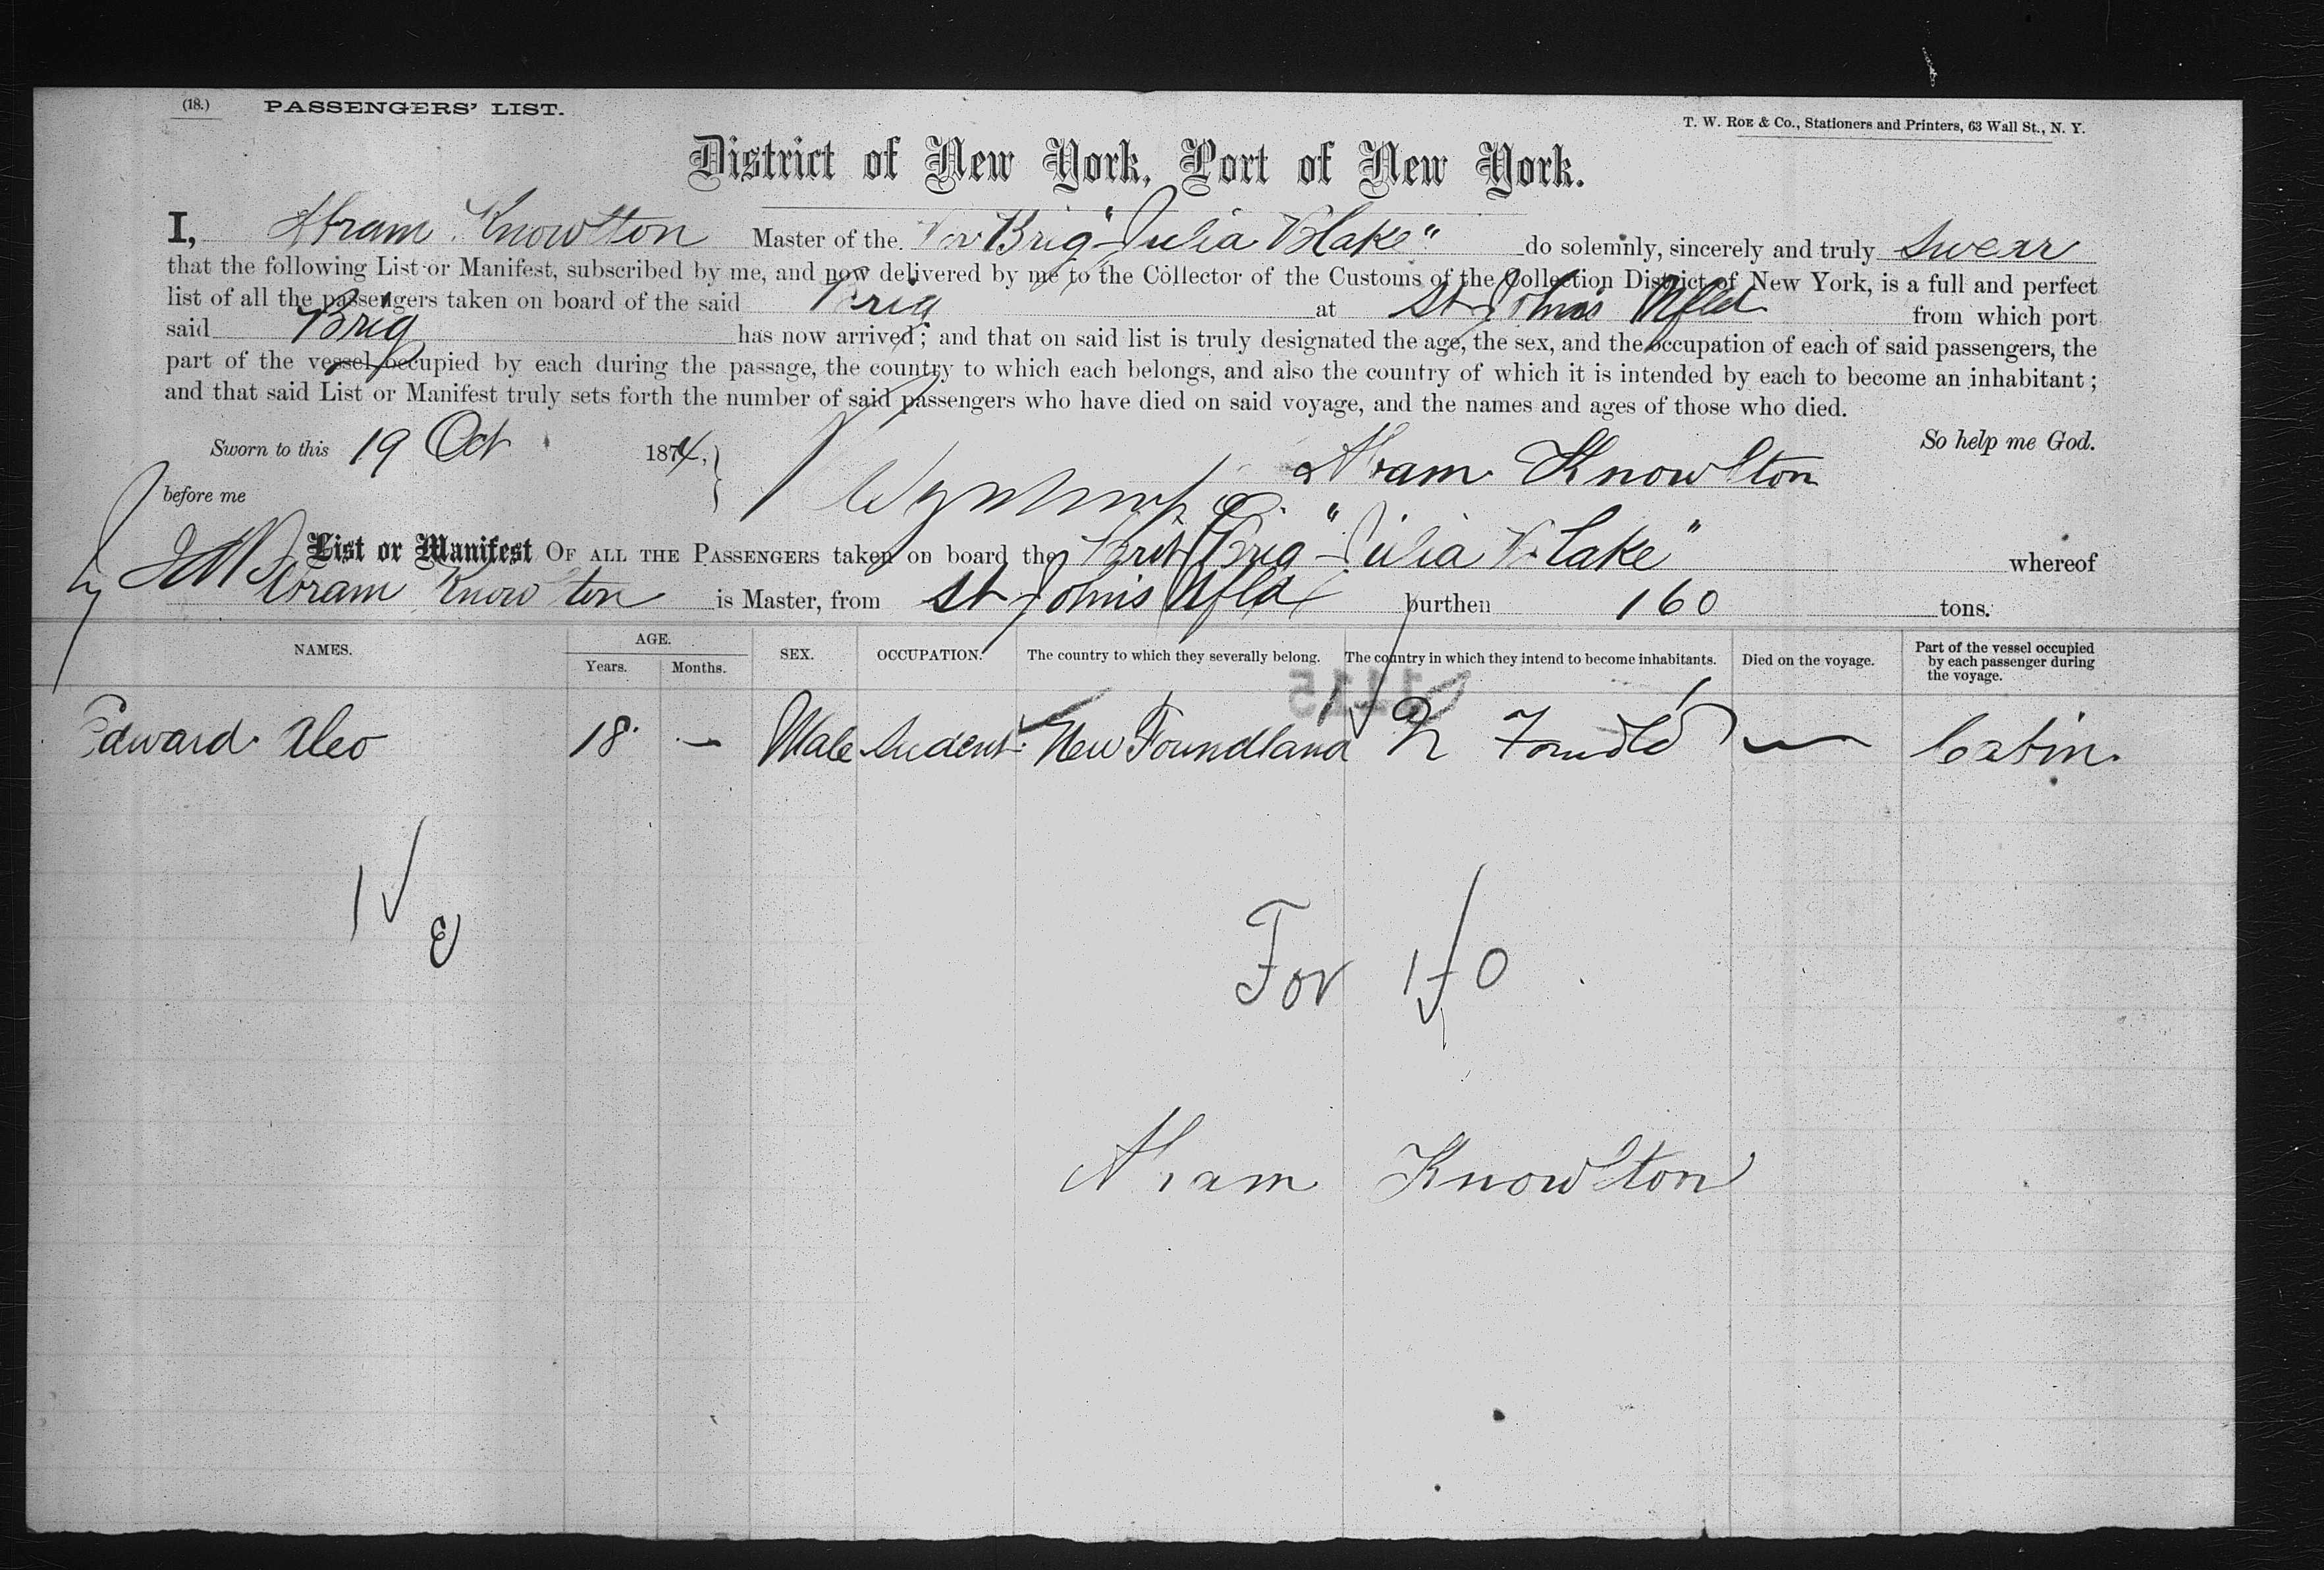 (18.) PASSENGERS' LIST.
T. W. ROE & Co., Stationers and Printers, 63 Wall St., N. Y.
District of New York, Port of New York.
I, Abram Knowlton Master of the Brig "Julia Blake" do solemnly, sincerely and truly swear
that the following List or Manifest, subscribed by me, and now delivered by me to the Collector of the Customs of the Collection District of New York, is a full and perfect
list of all the passengers taken on board of the said Brig at St Johns Nfld from which port
said Brig has now arrived; and that on said list is truly designated the age, the sex, and the occupation of each of said passengers, the
part of the vessel occupied by each during the passage, the country to which each belongs, and also the country of which it is intended by each to become an inhabitant;
and that said List or Manifest truly sets forth the number of said passengers who have died on said voyage, and the names and ages of those who died.
So help me God.
Sworn to this 19 Oct 1874,
Abram Knowlton
before me
List or Manifest OF ALL THE PASSENGERS taken on board the Brit Brig "Julia Blake" whereof
Abram Knowlton is Master, from St Johns Nfld burthen 160 tons.
NAMES. AGE. Years. Months. SEX. OCCUPATION. The country to which they severally belong. The country in which they intend to become inhabitants. Died on the voyage. Part of the vessel occupied by each passenger during the voyage.
Edward 18 — Male Student New Foundland N Foundld — Cabin.
1
For 1 0
Abram Knowlton